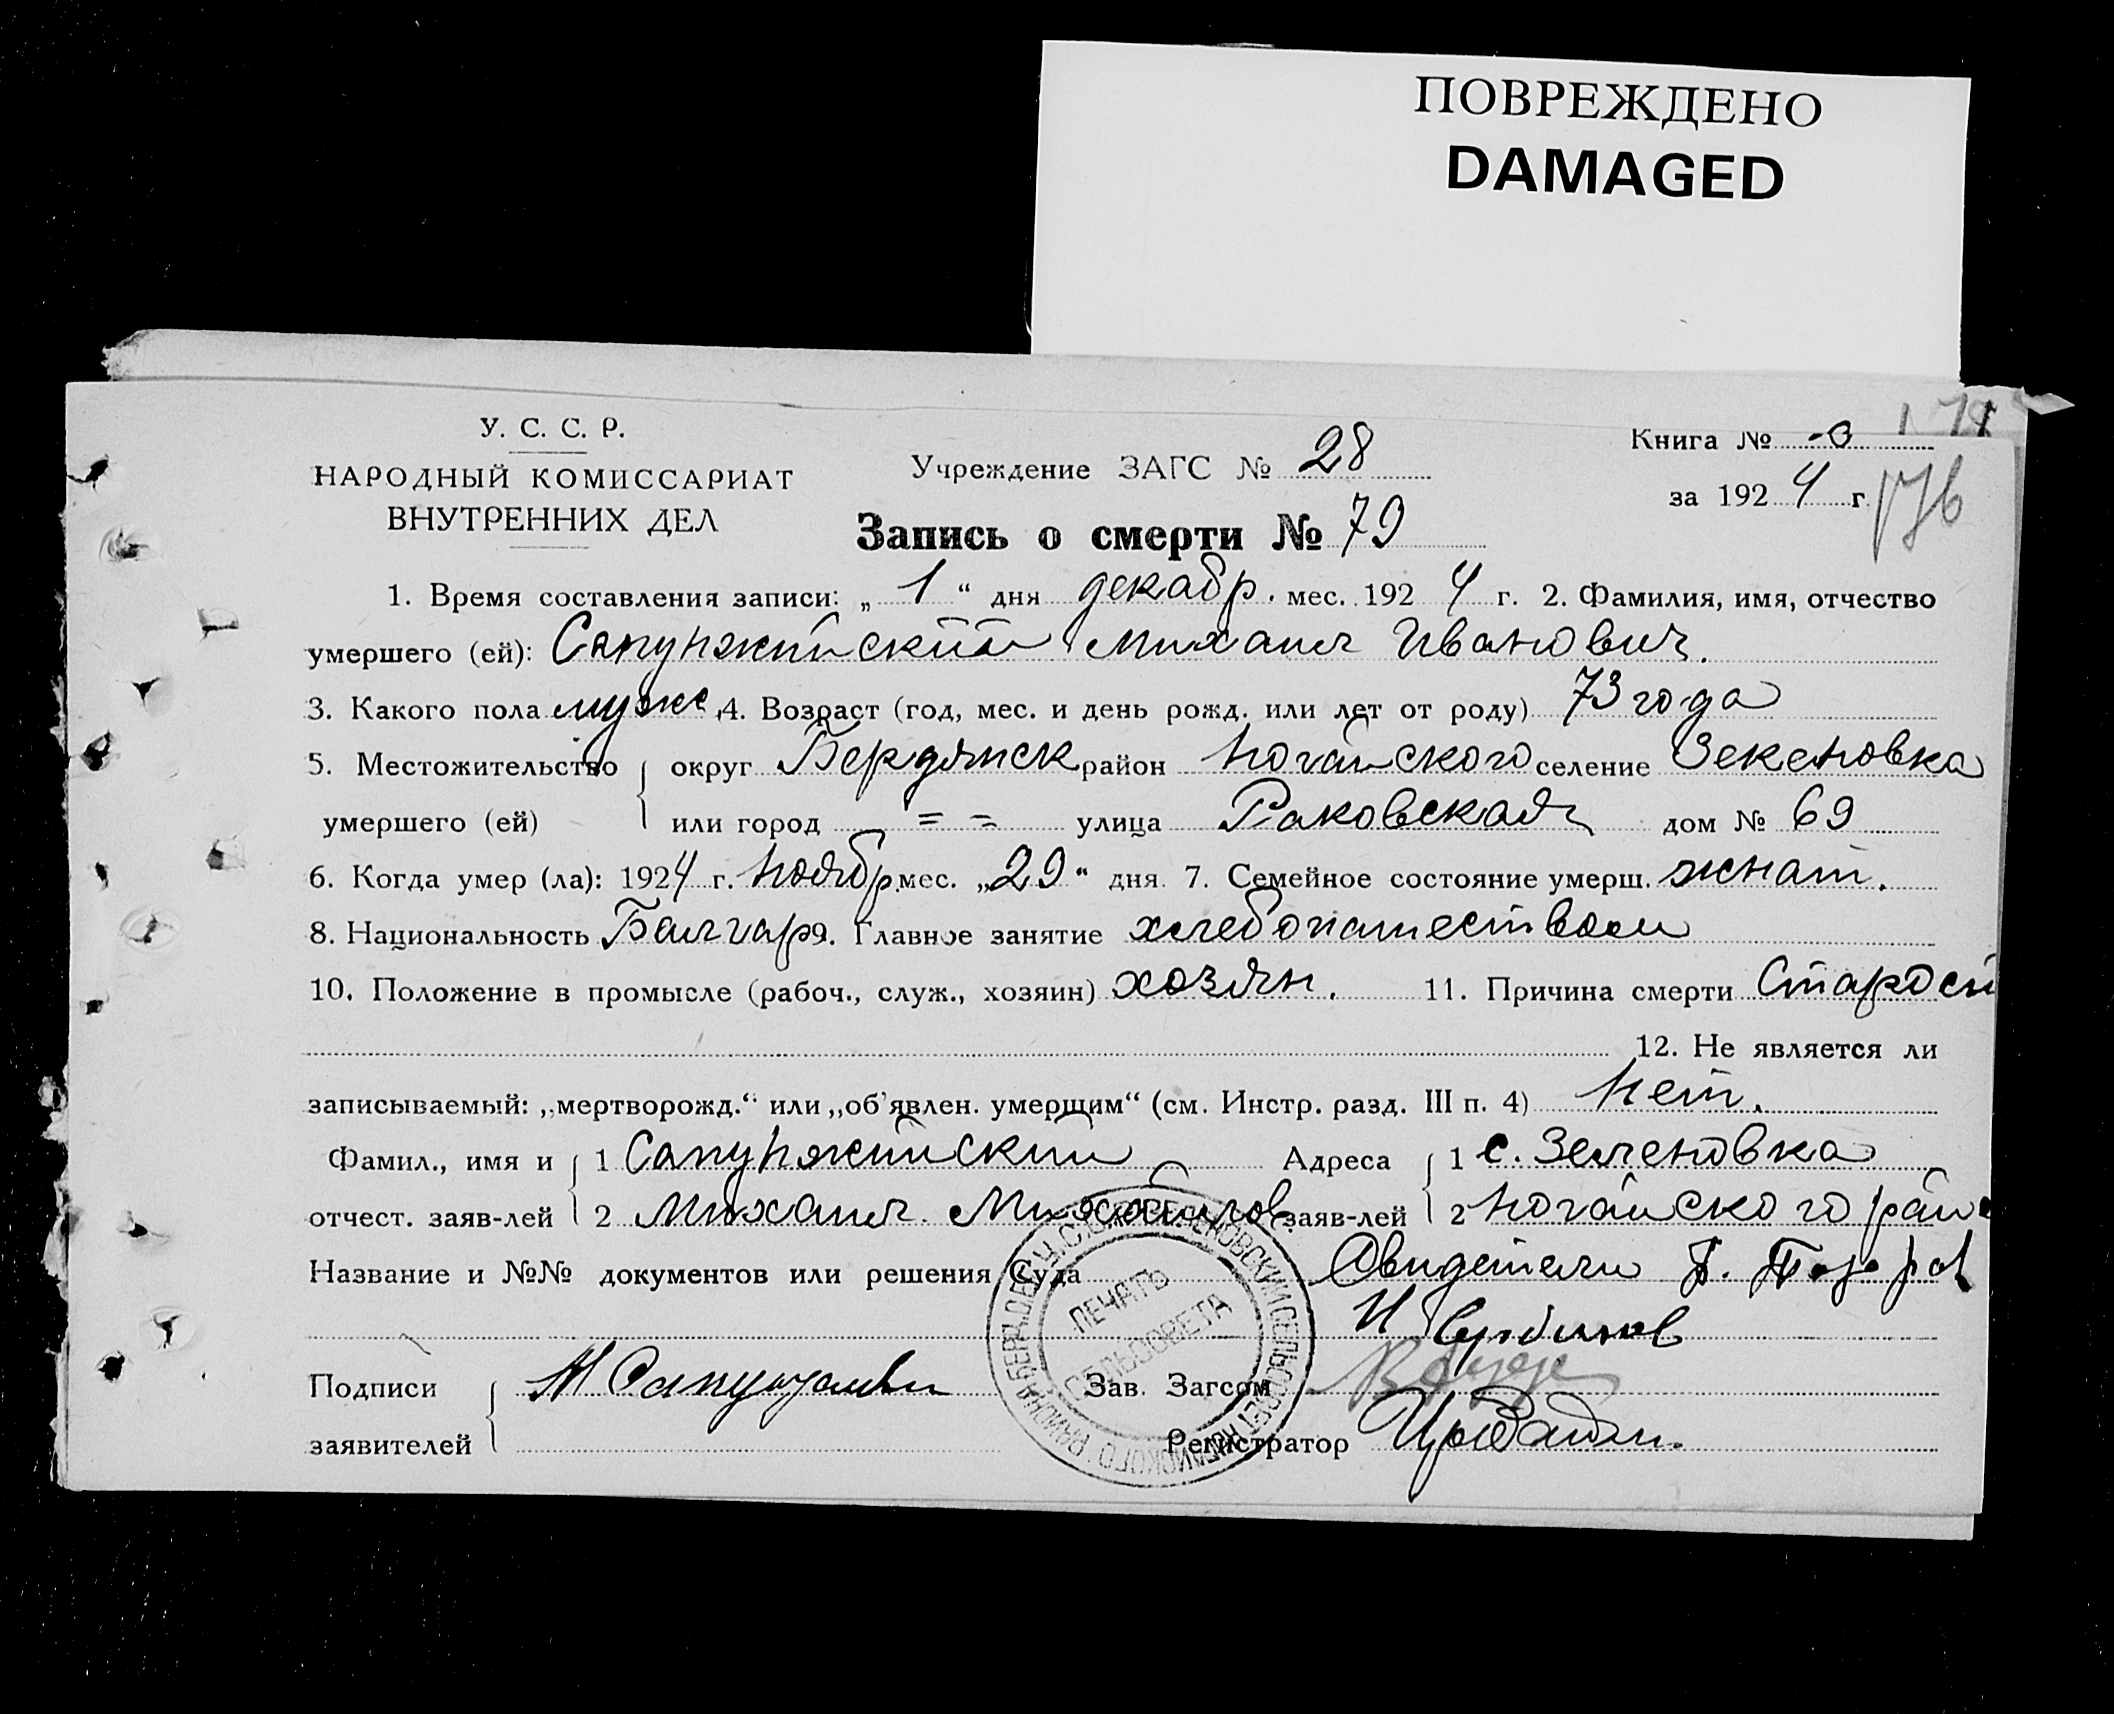 ПОВРЕЖДЕНО
DAMAGED
У. С. С. Р.
НАРОДНЫЙ КОМИССАРИАТ
ВНУТРЕННИХ ДЕЛ
Учреждение ЗАГС № 28
Книга №
за 1924 г.
176
Запись о смерти № 79
1. Время составления записи: „1“ дня декабр. мес. 1924 г. 2. Фамилия, имя, отчество
умершего (ей): Сапунжийский Михаил Иванович.
3. Какого пола муж. 4. Возраст (год, мес. и день рожд. или лет от роду) 73 года
5. Местожительство округ Бердянск район Ногайского селение Зеленовка
умершего (ей) или город = = улица Раковская дом № 69
6. Когда умер (ла): 1924 г. Ноябр. мес. „29“ дня. 7. Семейное состояние умерш. жнат.
8. Национальность Балгар 9. Главное занятие хлебопашеством
10. Положение в промысле (рабоч., служ., хозяин) хозяин. 11. Причина смерти Старост
12. Не является ли
записываемый: „мертворожд.“ или „об'явлен. умершим“ (см. Инстр. разд. III п. 4) Нет.
Фамил., имя и 1 Сапунжийский Адреса 1 с. Зеленовка
отчест. заяв-лей 2 Михаил Михайлов. заяв-лей 2 Ногайского рай
Название и №№ документов или решения Суда Свидетели
Подписи Зав. Загсом
заявителей Регистратор
ПЕЧАТЬ
СЕЛЬСОВЕТА